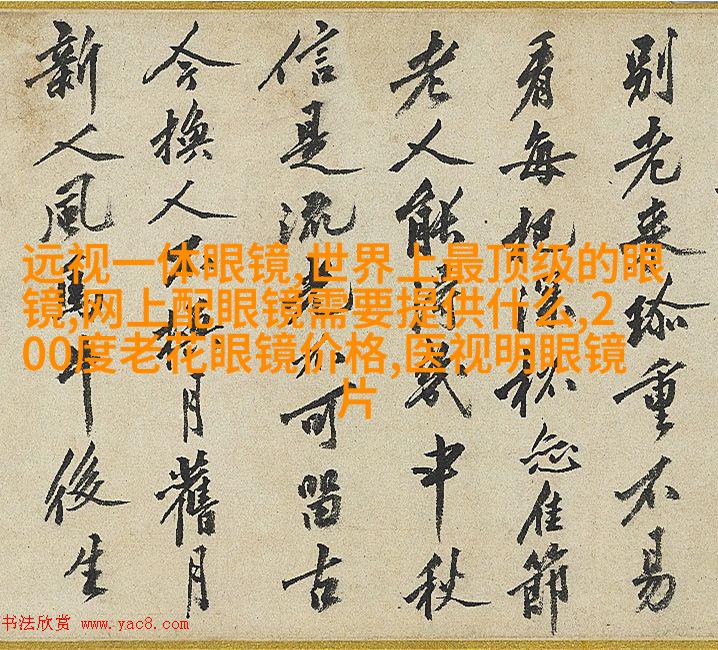 别老来珎重不易
看每把深杯佳節
老人能得幾中秋
信是流光不可留古
今換人不換月舊月
新人風馬牛後生
远视一体眼镜,世界上最顶级的眼
镜,网上配眼镜需要提供什么,2
00度老花眼镜价格,医视明眼镜
片
书法欣赏 www.yac8.com